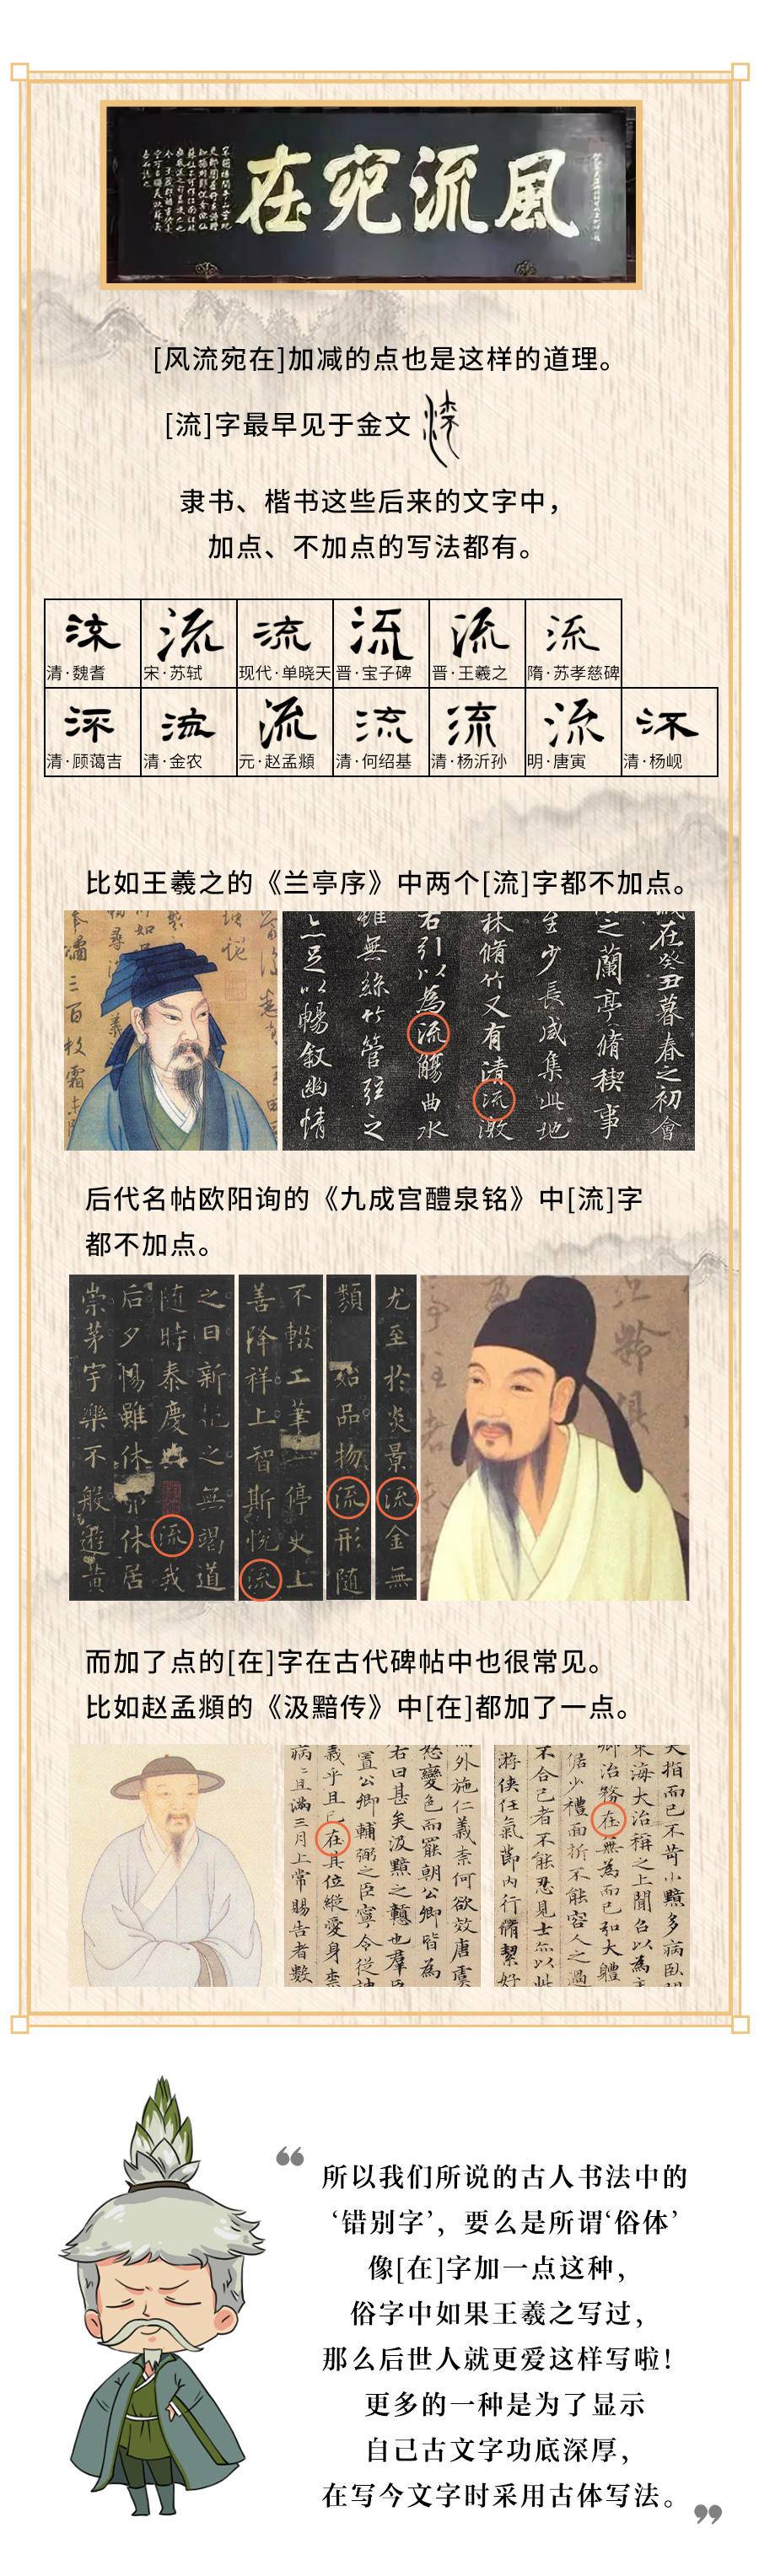 風流宛在
[风流宛在]加减的点也是这样的道理。
[流]字最早见于金文
隶书、楷书这些后来的文字中，
加点、不加点的写法都有。
流 流 流 流 流 流
清·魏耆 宋·苏轼 现代·单晓天 晋·宝子碑 晋·王羲之 隋·苏孝慈碑
流 流 流 流 流 流 流
清·顾蔼吉 清·金农 元·赵孟頫 清·何绍基 清·杨沂孙 明·唐寅 清·杨岘
比如王羲之的《兰亭序》中两个[流]字都不加点。
在癸丑暮春之初會
之蘭亭脩稧事
至少長咸集此地
林脩竹又有清流激
右引以為流觴曲水
雖無絲竹管弦之
足以暢叙幽情
后代名帖欧阳询的《九成宫醴泉铭》中[流]字
都不加点。
之日新記之無竭道
随時泰慶流我
后夕惕雖休休居
崇茅宇樂不般遊黄
不輟工筆停史上
善降祥上智斯悦流
類
品物流形随
尤至於炎景流金無
而加了点的[在]字在古代碑帖中也很常见。
比如赵孟頫的《汲黯传》中[在]都加了一点。
外施仁義柰何欲效唐虞
怒變色而罷朝公卿皆為
右曰甚矣汲黯之戇也羣臣
置公卿輔弼之臣寧令從
義乎且已在其位縱愛身柰
病且滿三月上常賜告者數
大指而已不苛小黯多病臥
東海大治稱之上聞召以為主
卿治務在無為而已弘大體
倨少禮面折不能容人之過
不合己者不能忍見士亦以此
游俠任氣節内行脩絜好
所以我们所说的古人书法中的
‘错别字’，要么是所谓‘俗体’
像[在]字加一点这种，
俗字中如果王羲之写过，
那么后世人就更爱这样写啦！
更多的一种是为了显示
自己古文字功底深厚，
在写今文字时采用古体写法。